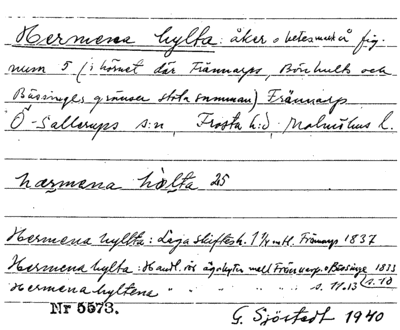 Hermena hylta: åker o betesmark å fig.
num 5 (i hörnet där Frännarps, Börshults och
Bässinges gränser stöta samman) Frännarp
Ö-Sallerups s:n, Frosta h:d, Malmöhus l.
hærmena hølta 25
Hermena hyllta: Laga skiftesh. 1 1/4 mtl. Frännarp 1837
Hermena hylta: Handl. rör ägobyten mell Frännarp o Bässinge 1833
Hermena hyltena " " " " " s. 11.13 s. 10
Nr 5573. G. Sjöstedt 1940